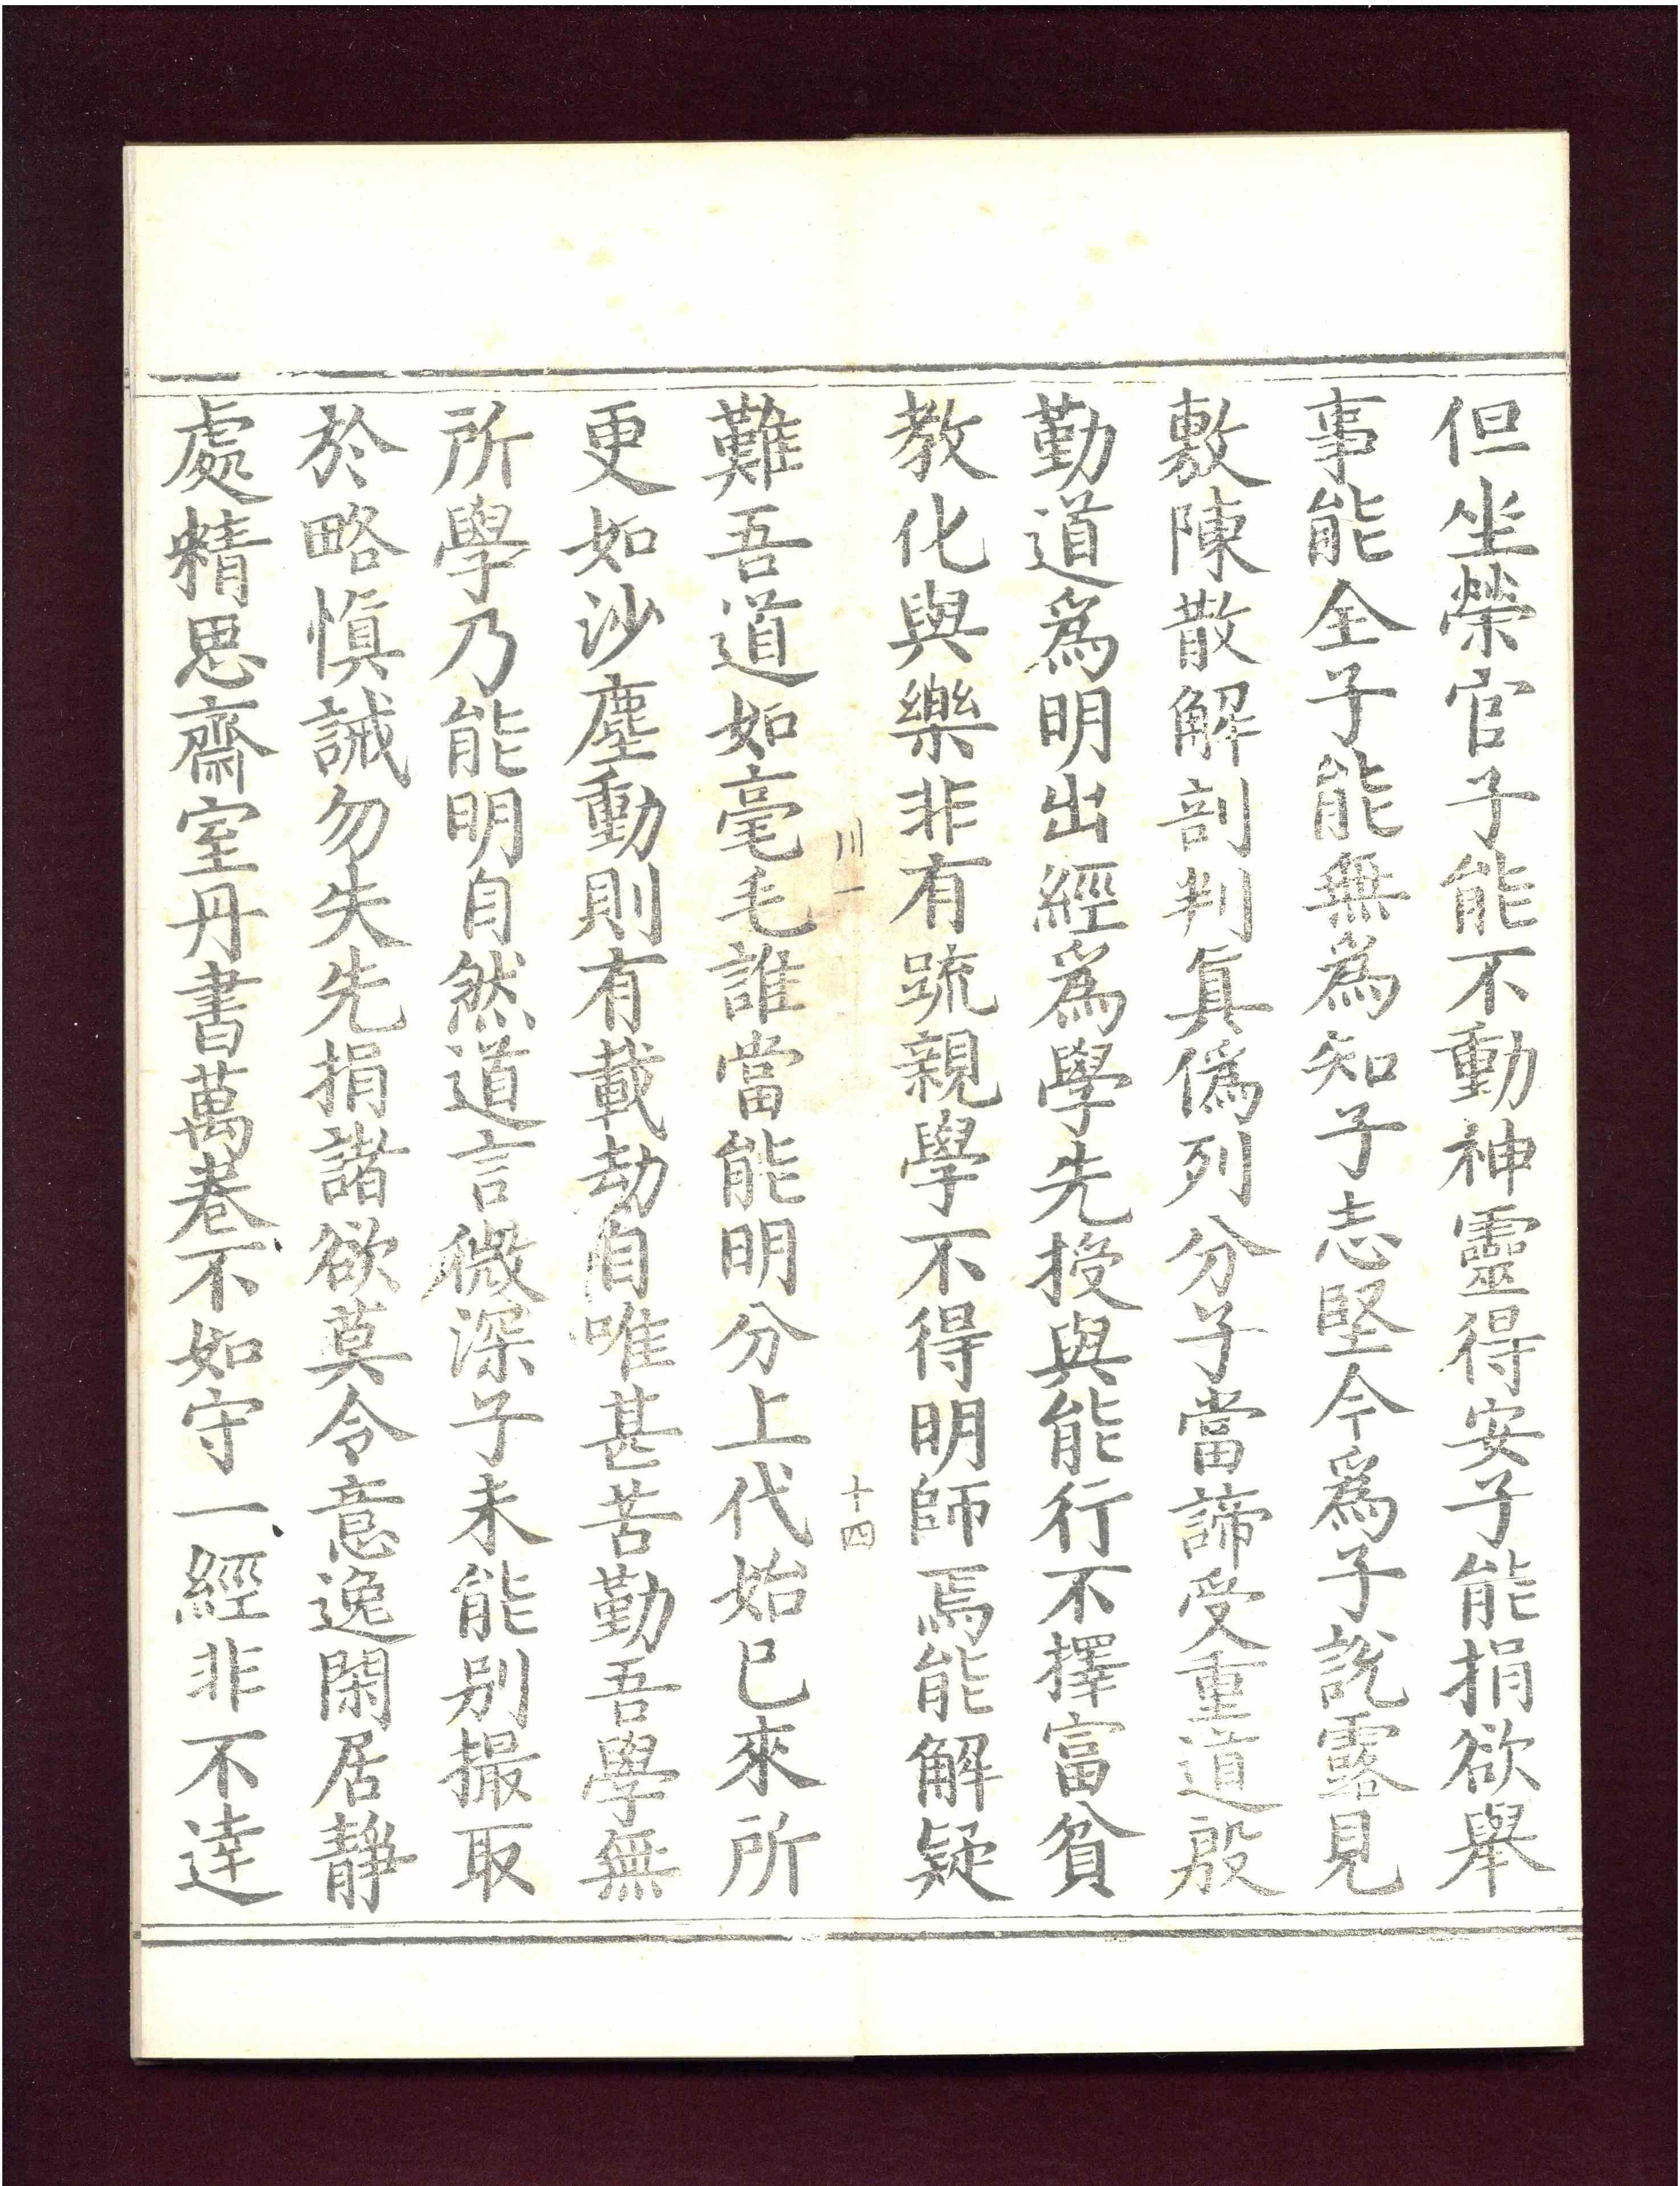 但坐榮官子能不動神靈得安子能捐欲舉
事能全子能無為知子志堅今爲子說露見
敷陳散解剖判眞僞列分子當諦受重道殷
勤道爲明出經爲學先授與能行不擇富貧
教化與樂非有䟽親學不得明師焉能解疑
川一
十四
難吾道如毫毛誰當能明分上代始已來所
更如沙塵動則有載劫自唯甚苦勤吾學無
所學乃能明自然道言微深子未能别撮取
於略愼誡勿失先捐諸欲莫令意逸閑居静
處精思齋室丹書萬卷不如守一經非不逹